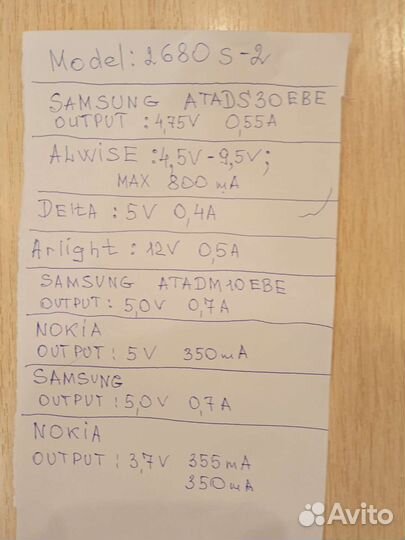 Model: 2680 S-2
SAMSUNG ATADS30EBE
OUTPUT : 4,75V 0,55A
ALWISE : 4,5V-9,5V;
MAX 800 mA
DELtA : 5V 0,4A
Arlight : 12V 0,5A
SAMSUNG ATADM10EBE
OUTPUT : 5,0V 0,7A
NOKiA
OUTPUT : 5V 350mA
SAMSUNG
OUTPUT : 5,0V 0,7A
NOKiA
OUTPUT : 3,7V 355mA
350mA
Avito